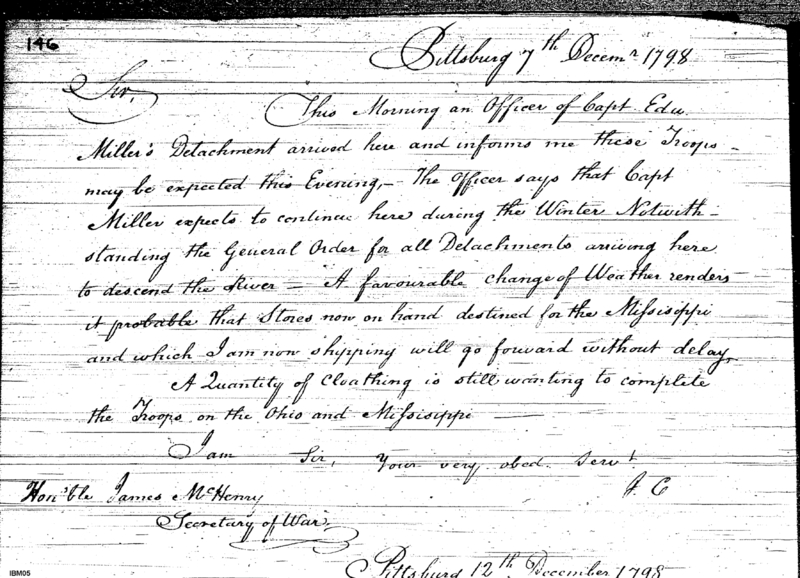 146
Pittsburg 7th Decemr 1798
Sir,
This Morning an Officer of Capt Edw.
Miller's Detachment arrived here and informs me these Troops
may be expected this Evening,— The Officer says that Capt
Miller expects to continue here during the Winter Notwith-
standing the General Order for all Detachments arriving here
to descend the River — A favourable change of Weather renders
it probable that Stores now on hand destined for the Missisippi
and which I am now shipping will go forward without delay,
A Quantity of Cloathing is still wanting to complete
the Troops on the Ohio and Missisippi —
I am Sir, Your very obed. Servt.
J. C
Hon'ble James McHenry
Secretary of War
Pittsburg 12th December 1798
IBM05